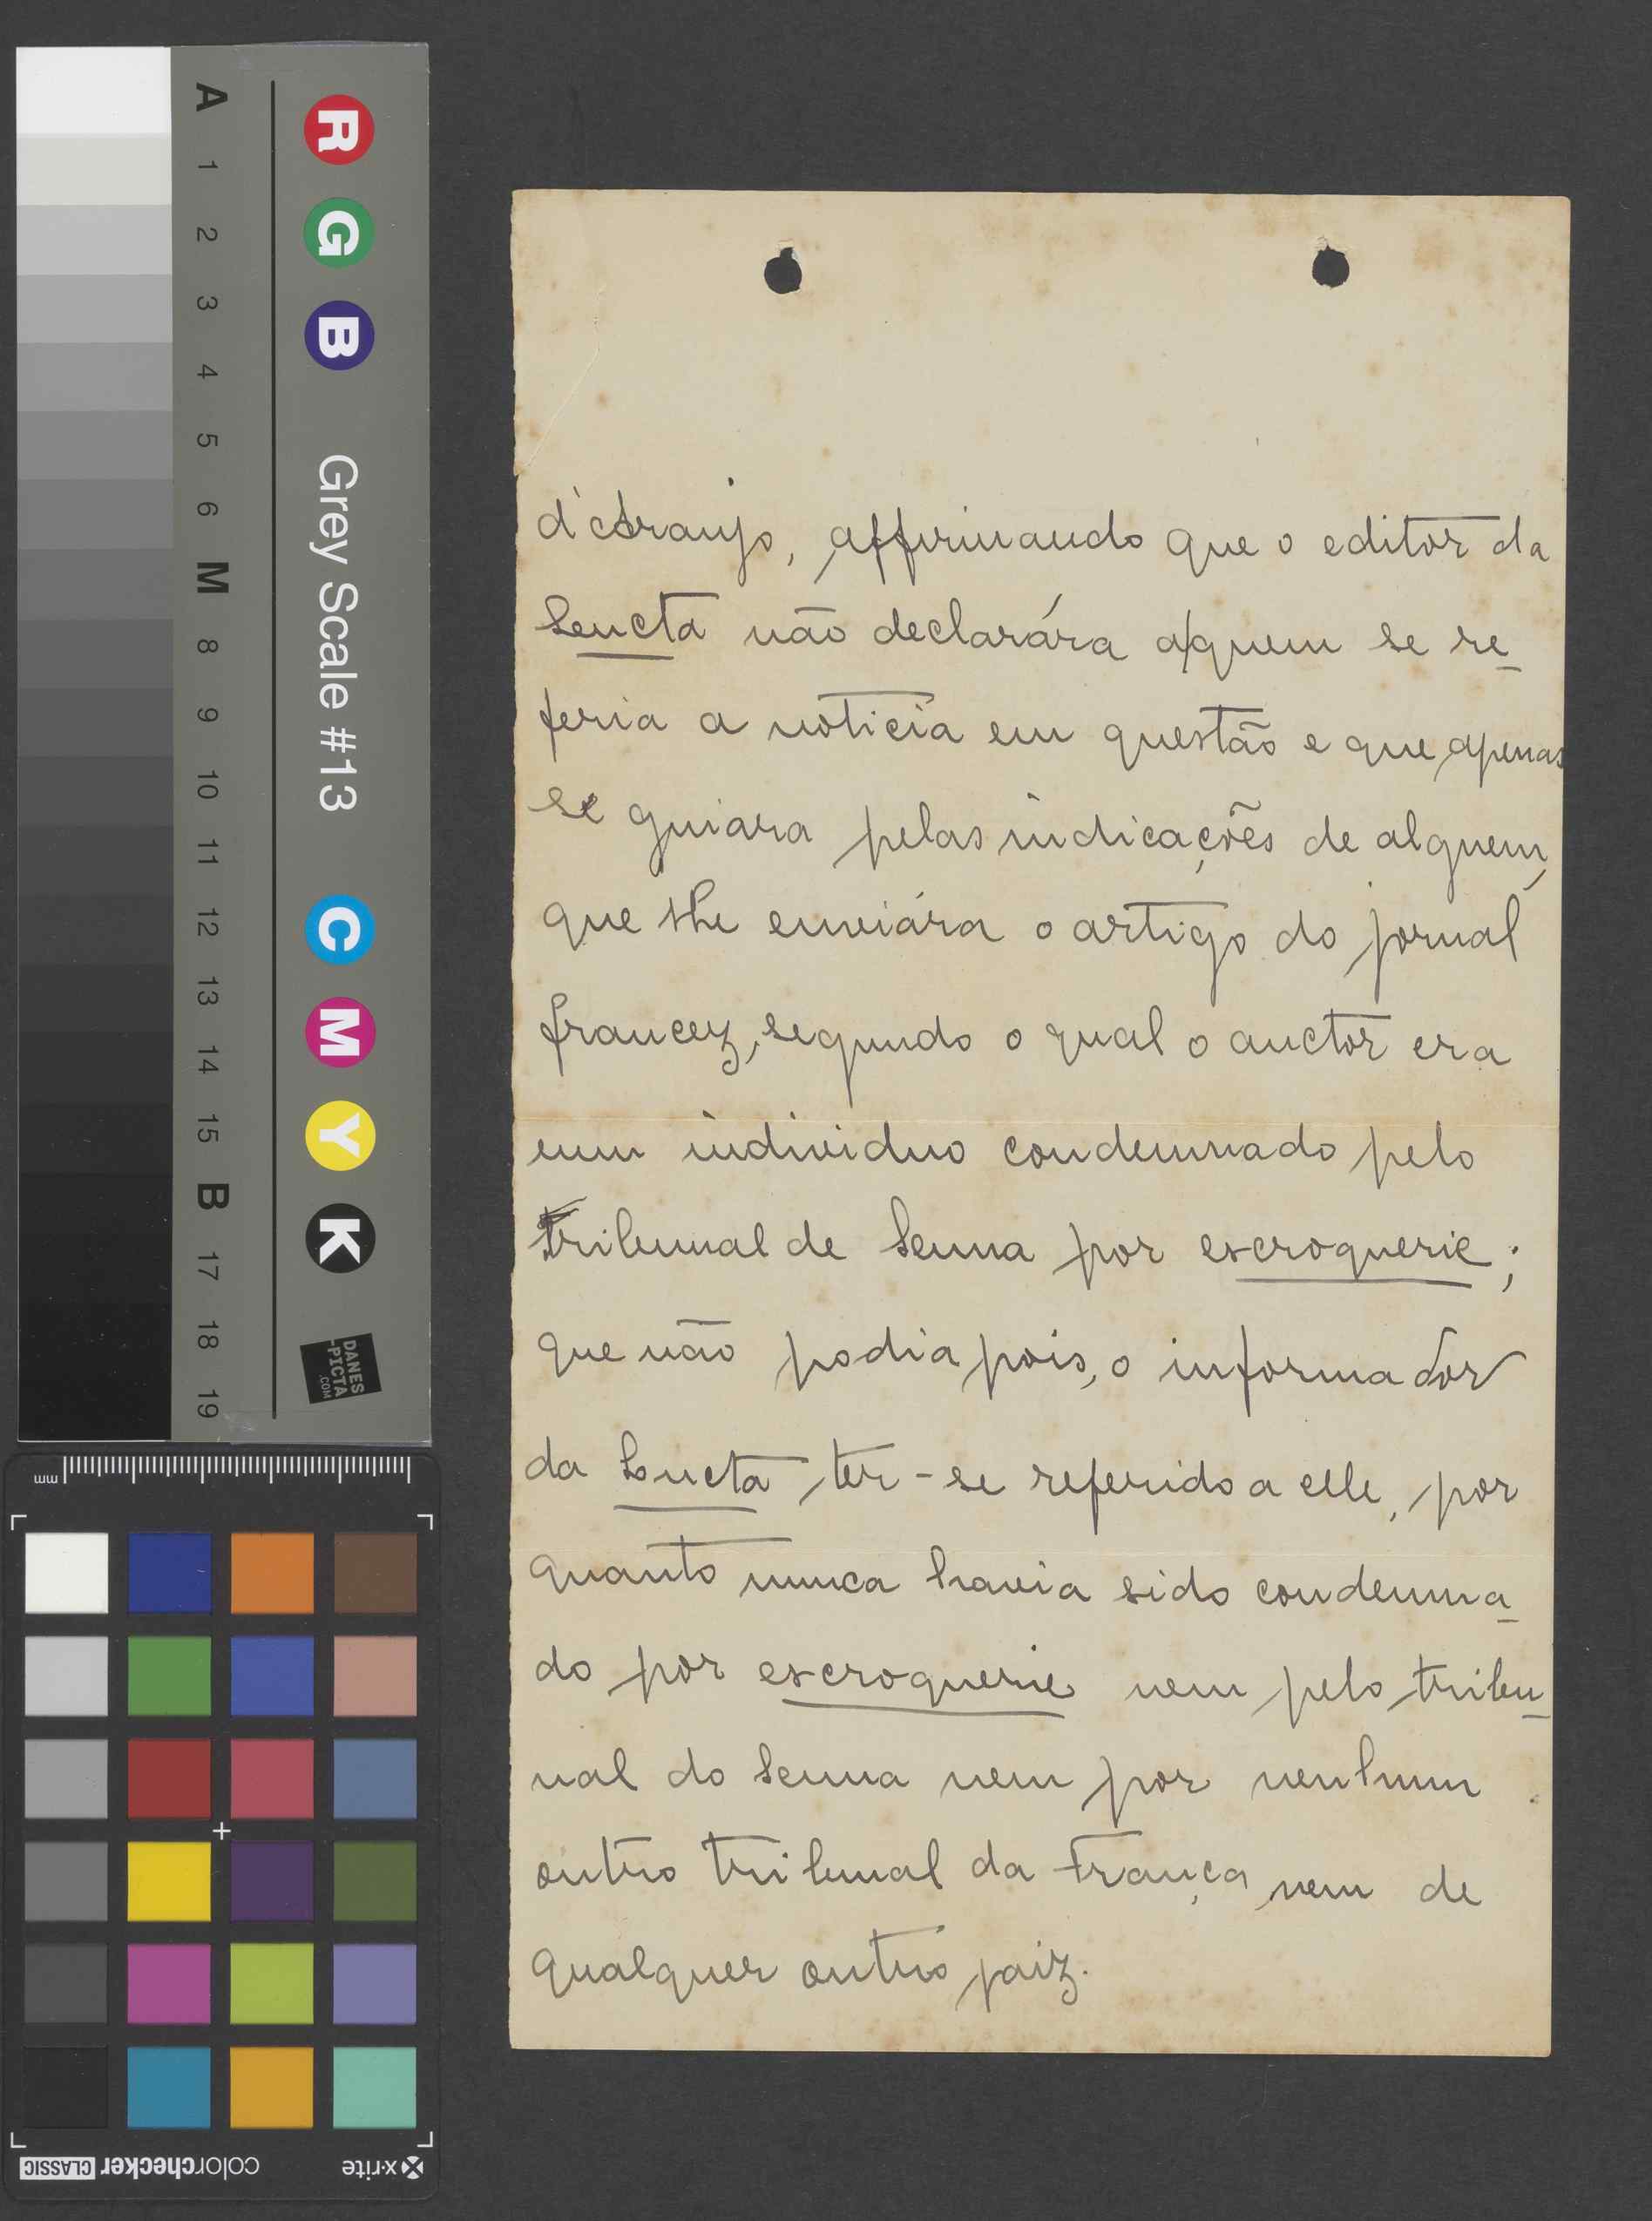 A
1
2
3
4
5
6
M
8
9
10
11
12
13
14
15
B
17
18
19
R
G
B
Grey Scale #13
C
M
Y
K
DANES
-PICTA
.COM
mm
x-rite
colorchecker CLASSIC
d'Araujo, affirmando que o editor da
Lucta não declarára a quem se re-
feria a noticia em questão e que apenas
se guiara pelas indicações de alguem,
que lhe enviára o artigo do jornal
francez, segundo o qual o auctor era
um individuo condemnado pelo
Tribunal de Senna por escroquerie;
que não podia pois, o informador
da Lucta, ter-se referido a elle, por
quanto nunca havia sido condemna-
do por escroquerie nem pelo tribu-
nal do Senna nem por nenhum
outro tribunal da França nem de
qualquer outro paiz.